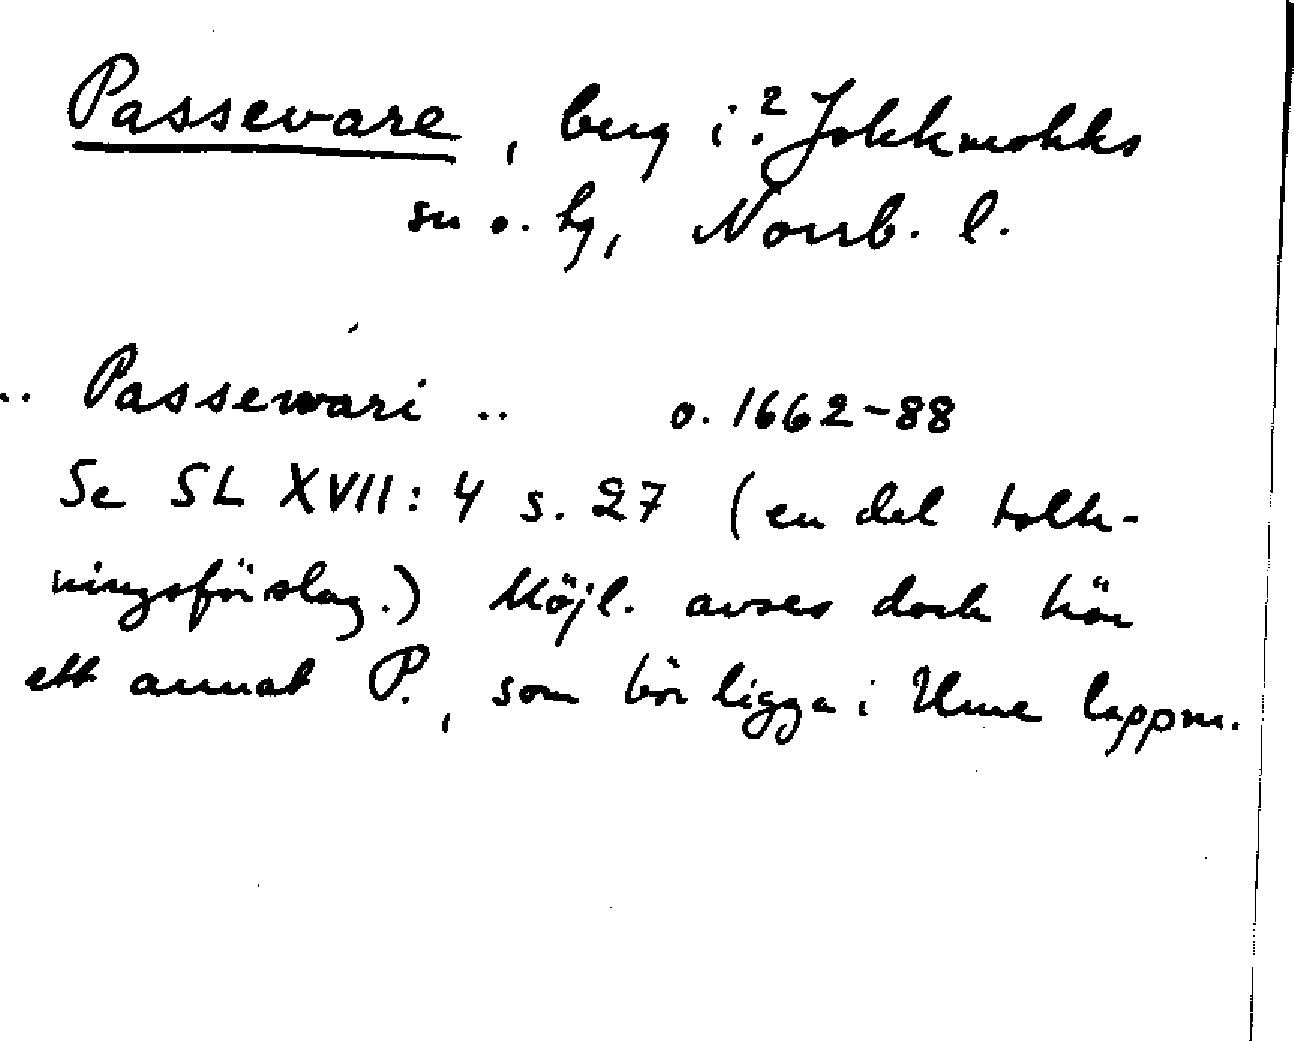 Passevare, berg i ? Jokkmokks
sn o. hg, Norrb. l.
.. Passewari .. o. 1662-88
Se SL XVII: 4 s. 27 (en del tolk-
ningsförslag.) Möjl. avses dock här
ett annat P., som bör ligga i Ume lappm.